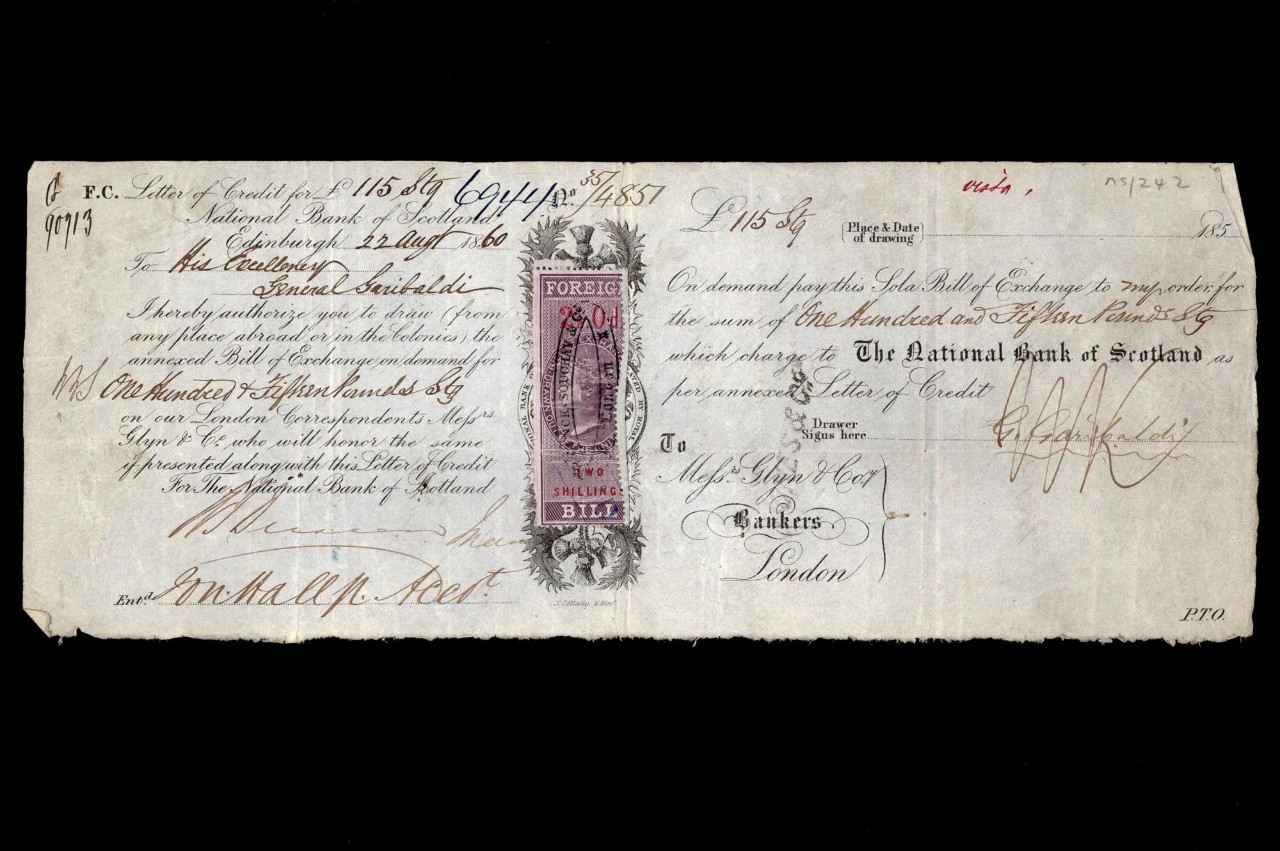 F.C. Letter of Credit for £ 115 Stg 6944 No. 35/4851
90713
National Bank of Scotland
Edinburgh 22 Augt 1860
To His Excellency
General Garibaldi
I hereby authorize you to draw (from
any place abroad or in the Colonies) the
annexed Bill of Exchange on demand for
One Hundred & Fifteen Pounds Stg
on our London Correspondents Messrs
Glyn & Co. who will honor the same
if presented along with this Letter of Credit
For The National Bank of Scotland
Entd.
FOREIG
TWO
SHILLINGS
BILL
ns/242
£ 115 Stg
Place & Date of drawing
185
On demand pay this Sola Bill of Exchange to my order for
the sum of One Hundred and Fifteen Pounds Stg
which charge to The National Bank of Scotland as
per annexed Letter of Credit
Drawer
Signs here G. Garibaldi
To
Messrs Glyn & Co.
Bankers
London
P.T.O.